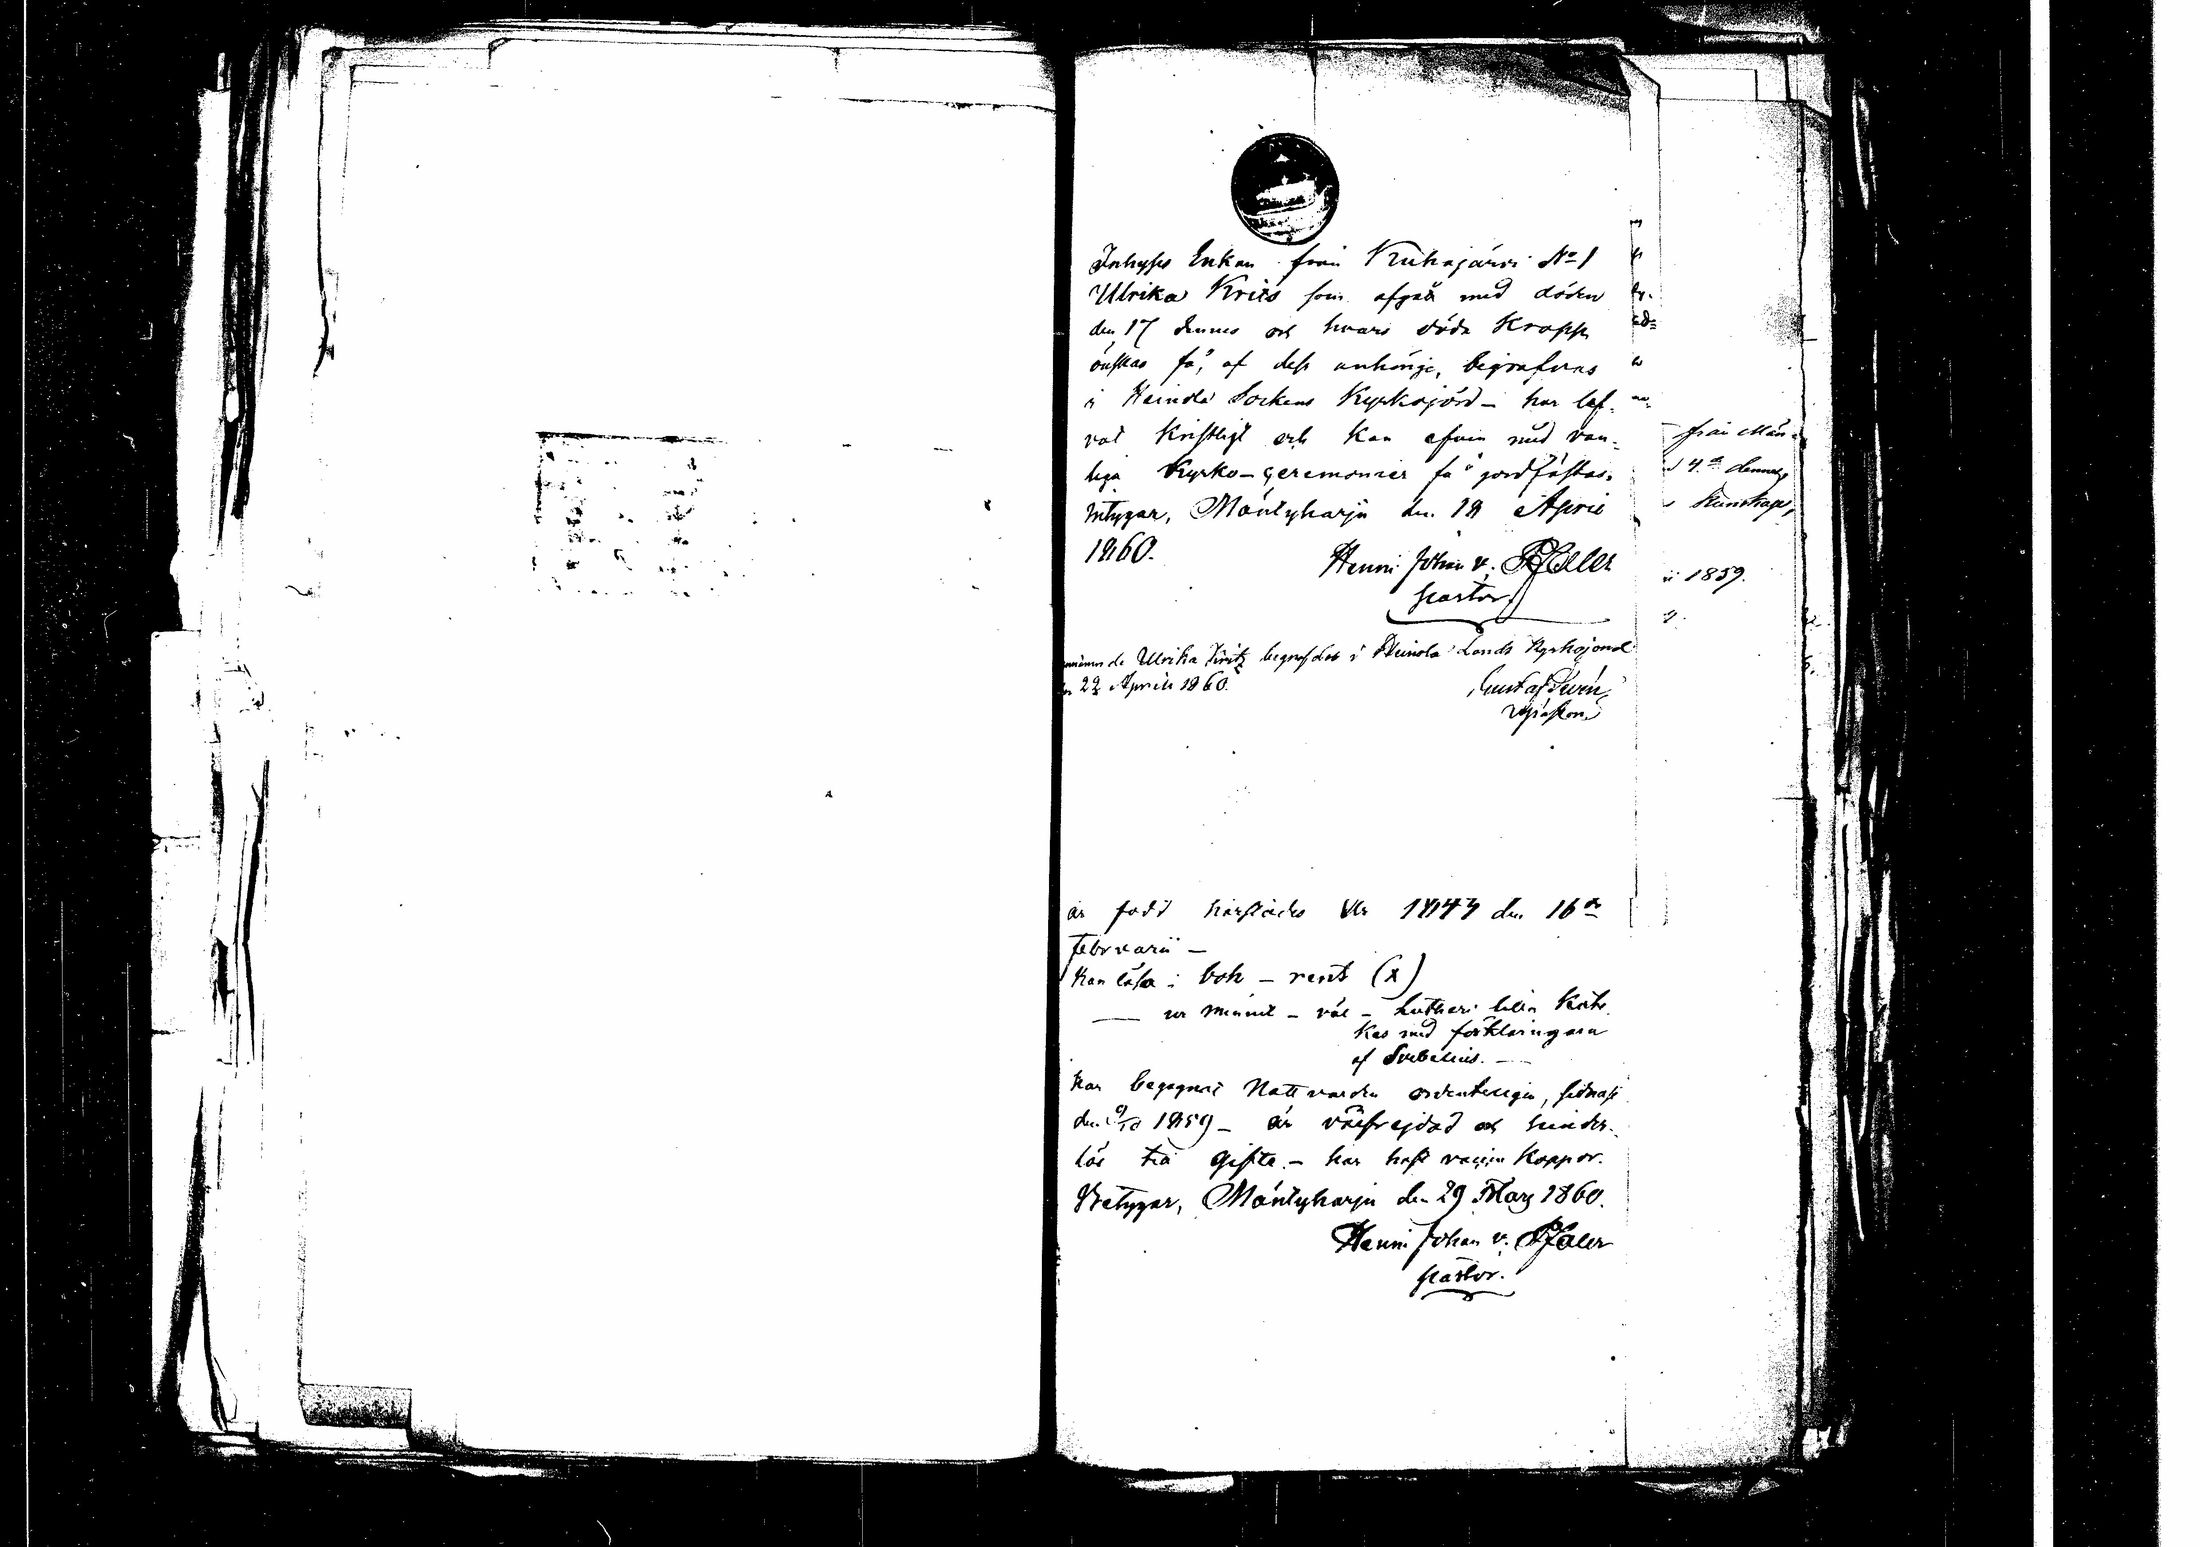 Inhyses Enkan från Kuhajärvi No 1
Ulrika Krits som afgått med döden
den 17 dennes och hvars döda Kropp
önskas få, af dess anhörige, begrafvas
i Heinola Sockens Kyrkojord – har lef-
vat Kristligt och Kan äfven med van-
liga Kyrko-ceremonier få jordfästas.
Intygar, Mäntyharju den 18 April
1860.
Henric Johan v. Pfaler
pastor.
Ulrika Krits begrafdes i Heinola Lands Kyrkojord
22 April 1860.
Gustaf
är född härstädes År 1843 den 16de
februarii –
Kan läsa i bok – rent (x)
— ur minnet – väl – Lutheri lilla Kate
kes med förklaringarne
af Svebelius. –
har begagnat Nattvarden ordenteligen, sednast
den 9/10 1859 – är välfrejdad och hinder-
lös till gifte. – har haft vaccin Koppor.
Betygar, Mäntyharju den 29 Mars 1860.
Henric Johan v. Pfaler
pastor.
från Män-
4de dennes
Kunskap,
1859.